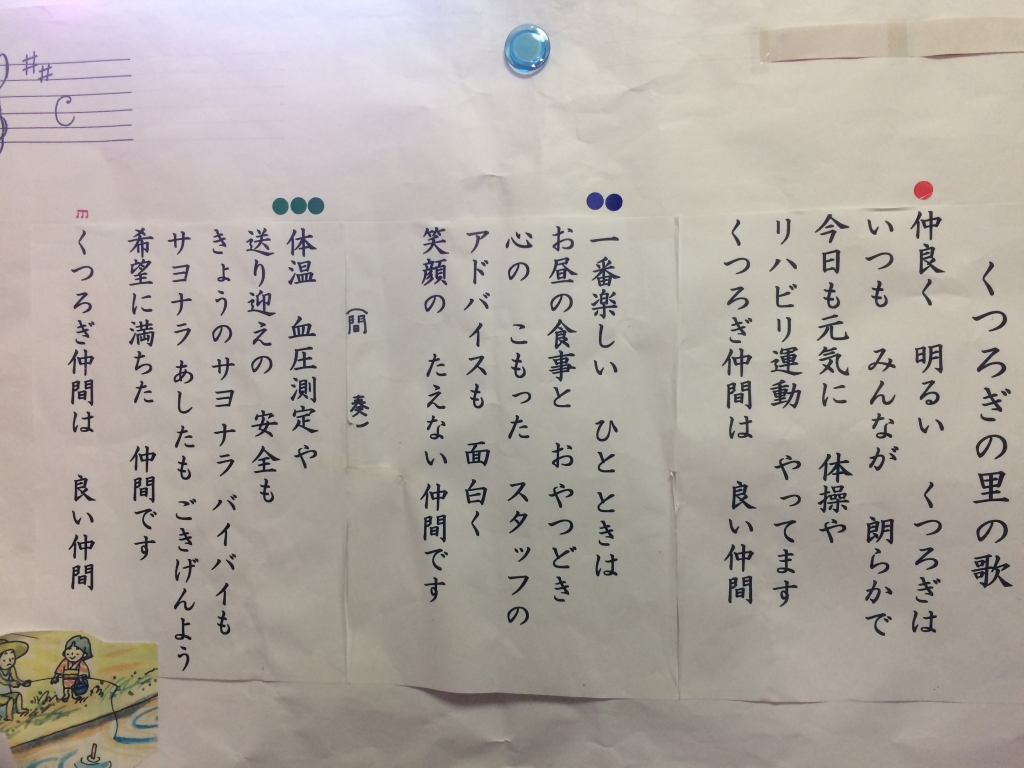 くつろぎの里の歌
仲良く 明るい くつろぎは
いつも みんなが 朗らかで
今日も元気に 体操や
リハビリ運動 やってます
くつろぎ仲間は 良い仲間
一番楽しい ひと ときは
お昼の食事と お やつどき
心の こもった スタッフの
アドバイスも 面白く
笑顔の たえない 仲間です
(間 奏)
体温 血圧測定や
送り迎えの 安全も
きょうのサヨナラ バイバイも
サヨナラ あしたも ごきげんよう
希望に満ちた 仲間です
くつろぎ仲間は 良い仲間